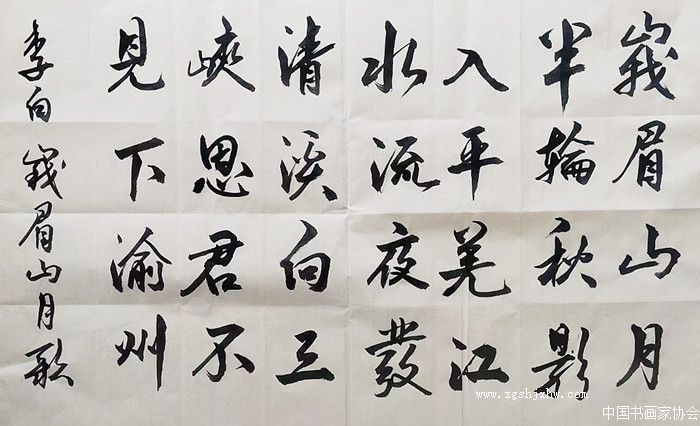 峩眉山月
半輪秋影
入平羌江
水流夜發
清溪向三
峽思君不
見下渝州
李白峩眉山月歌
www.zgshjxhw.com
中国书画家协会